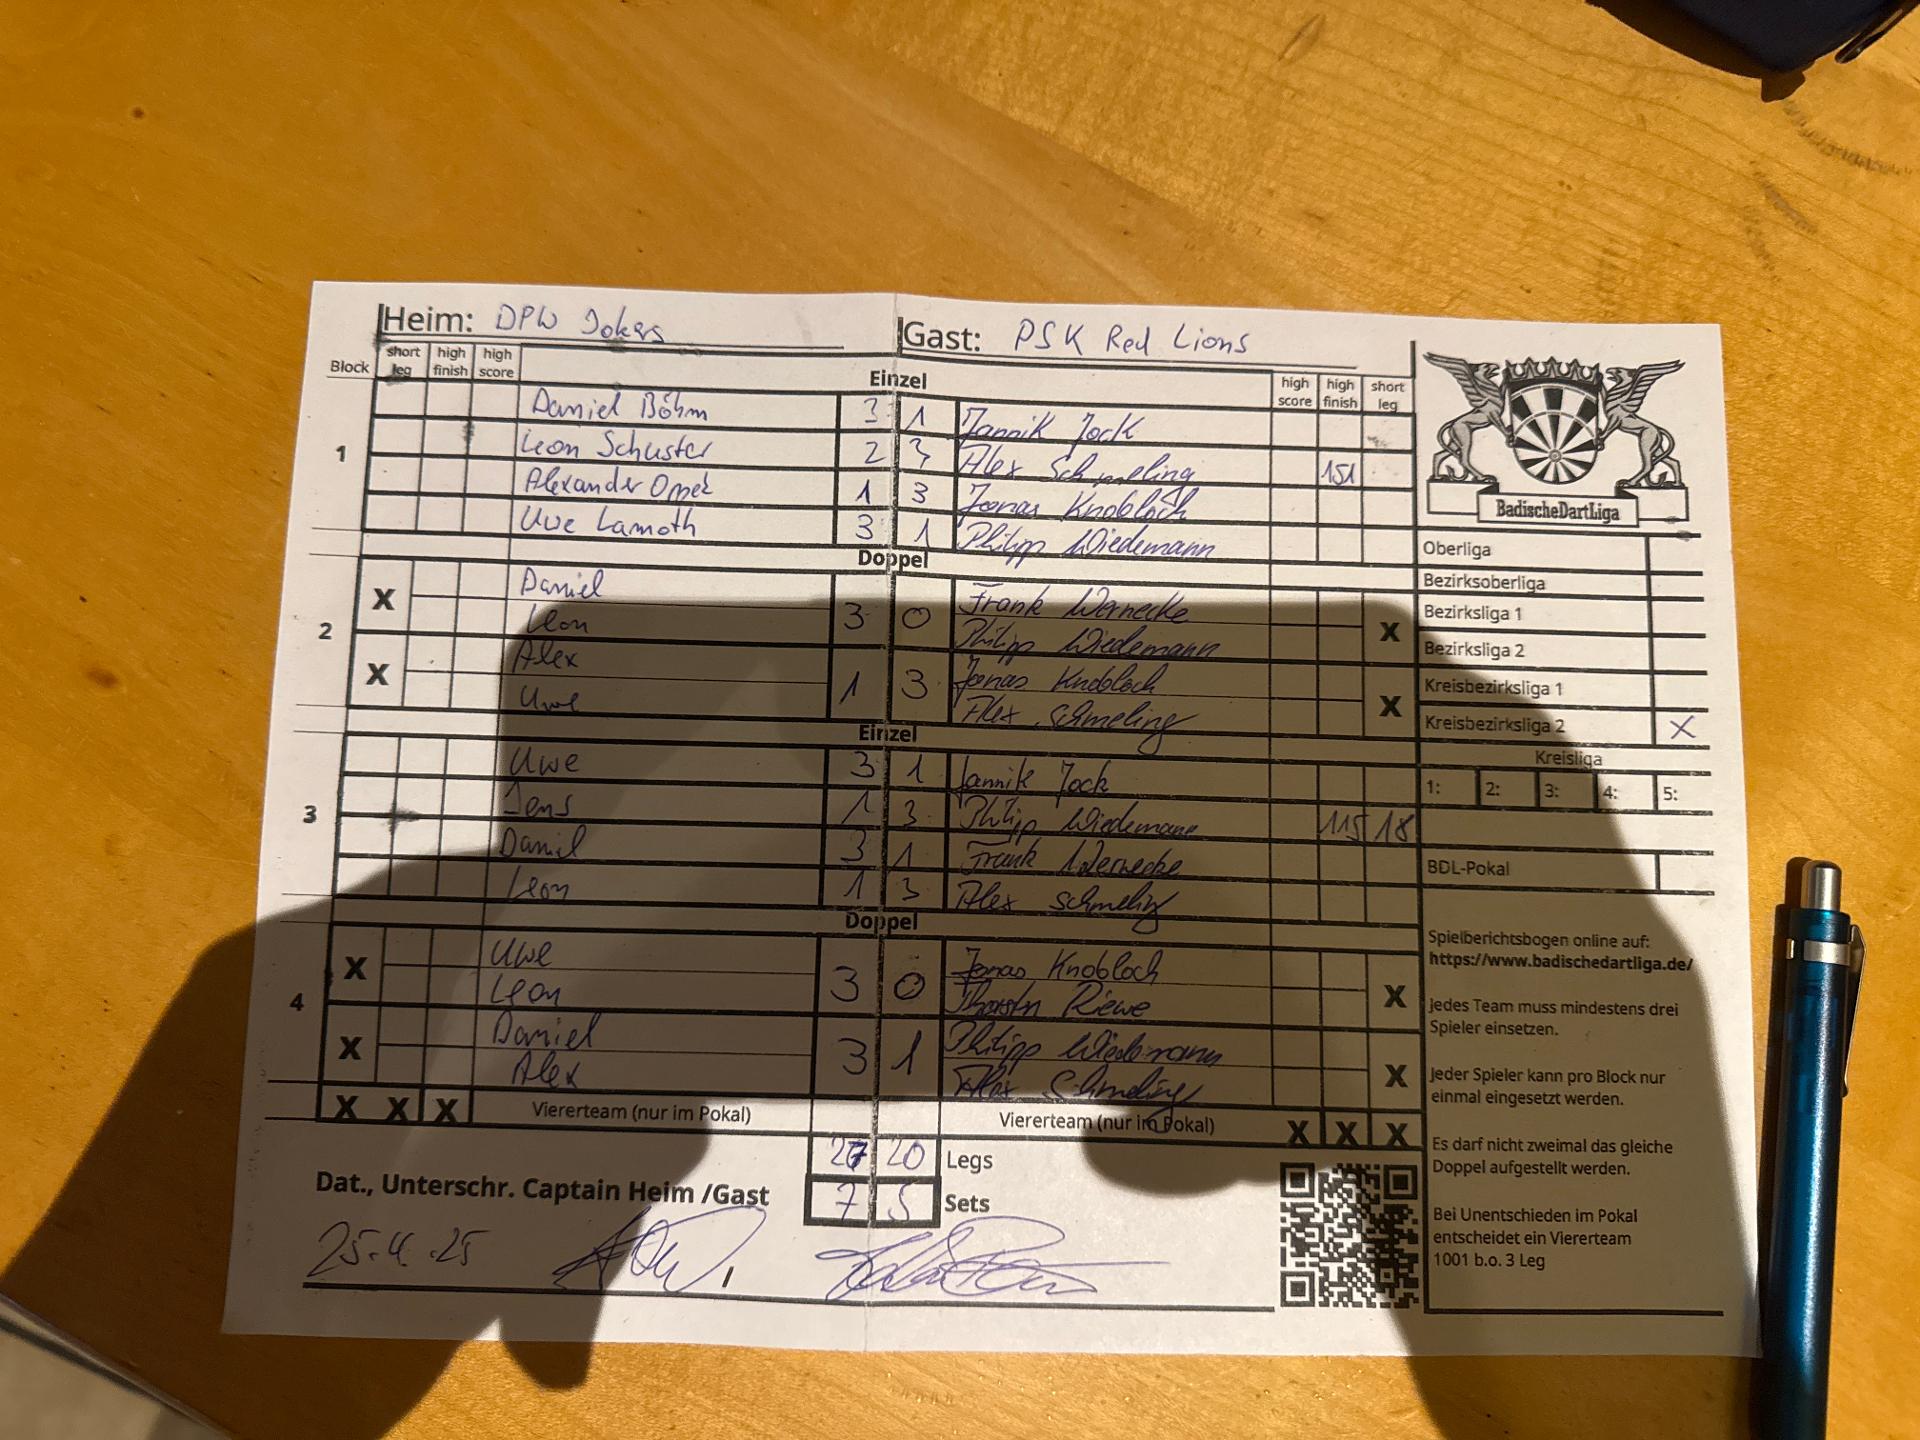 Heim: DPW Jokers Gast: PSK Red Lions
Block short leg high finish high score Einzel high score high finish short leg
1
Daniel Böhm 3 1 Jannik Jock
Leon Schuster 2 3 Alex Schmeling 151
Alexander 1 3 Jonas Knobloch
Uwe Lamoth 3 1 Philipp Wiedemann
Doppel
2
X Daniel 3 0 Frank Wernecke X
Leon Philipp Wiedemann
X Alex 1 3 Jonas Knobloch X
Uwe Alex Schmeling
Einzel
3
Uwe 3 1 Jannik Jock
Jens 1 3 Philipp Wiedemann 115 18
Daniel 3 1 Frank Wernecke
Leon 1 3 Alex Schmeling
Doppel
4
X Uwe 3 0 Jonas Knobloch X
Leon Thorsten Riewe
X Daniel 3 1 Philipp Wiedemann X
Alex Alex Schmeling
X X X Viererteam (nur im Pokal) Viererteam (nur im Pokal) X X X
27 20 Legs
7 5 Sets
Dat., Unterschr. Captain Heim /Gast
25.4.25
BadischeDartLiga
Oberliga
Bezirksoberliga
Bezirksliga 1
Bezirksliga 2
Kreisbezirksliga 1
Kreisbezirksliga 2 X
Kreisliga
1: 2: 3: 4: 5:
BDL-Pokal
Spielberichtsbogen online auf:
https://www.badischedartliga.de/
Jedes Team muss mindestens drei
Spieler einsetzen.
Jeder Spieler kann pro Block nur
einmal eingesetzt werden.
Es darf nicht zweimal das gleiche
Doppel aufgestellt werden.
Bei Unentschieden im Pokal
entscheidet ein Viererteam
1001 b.o. 3 Leg